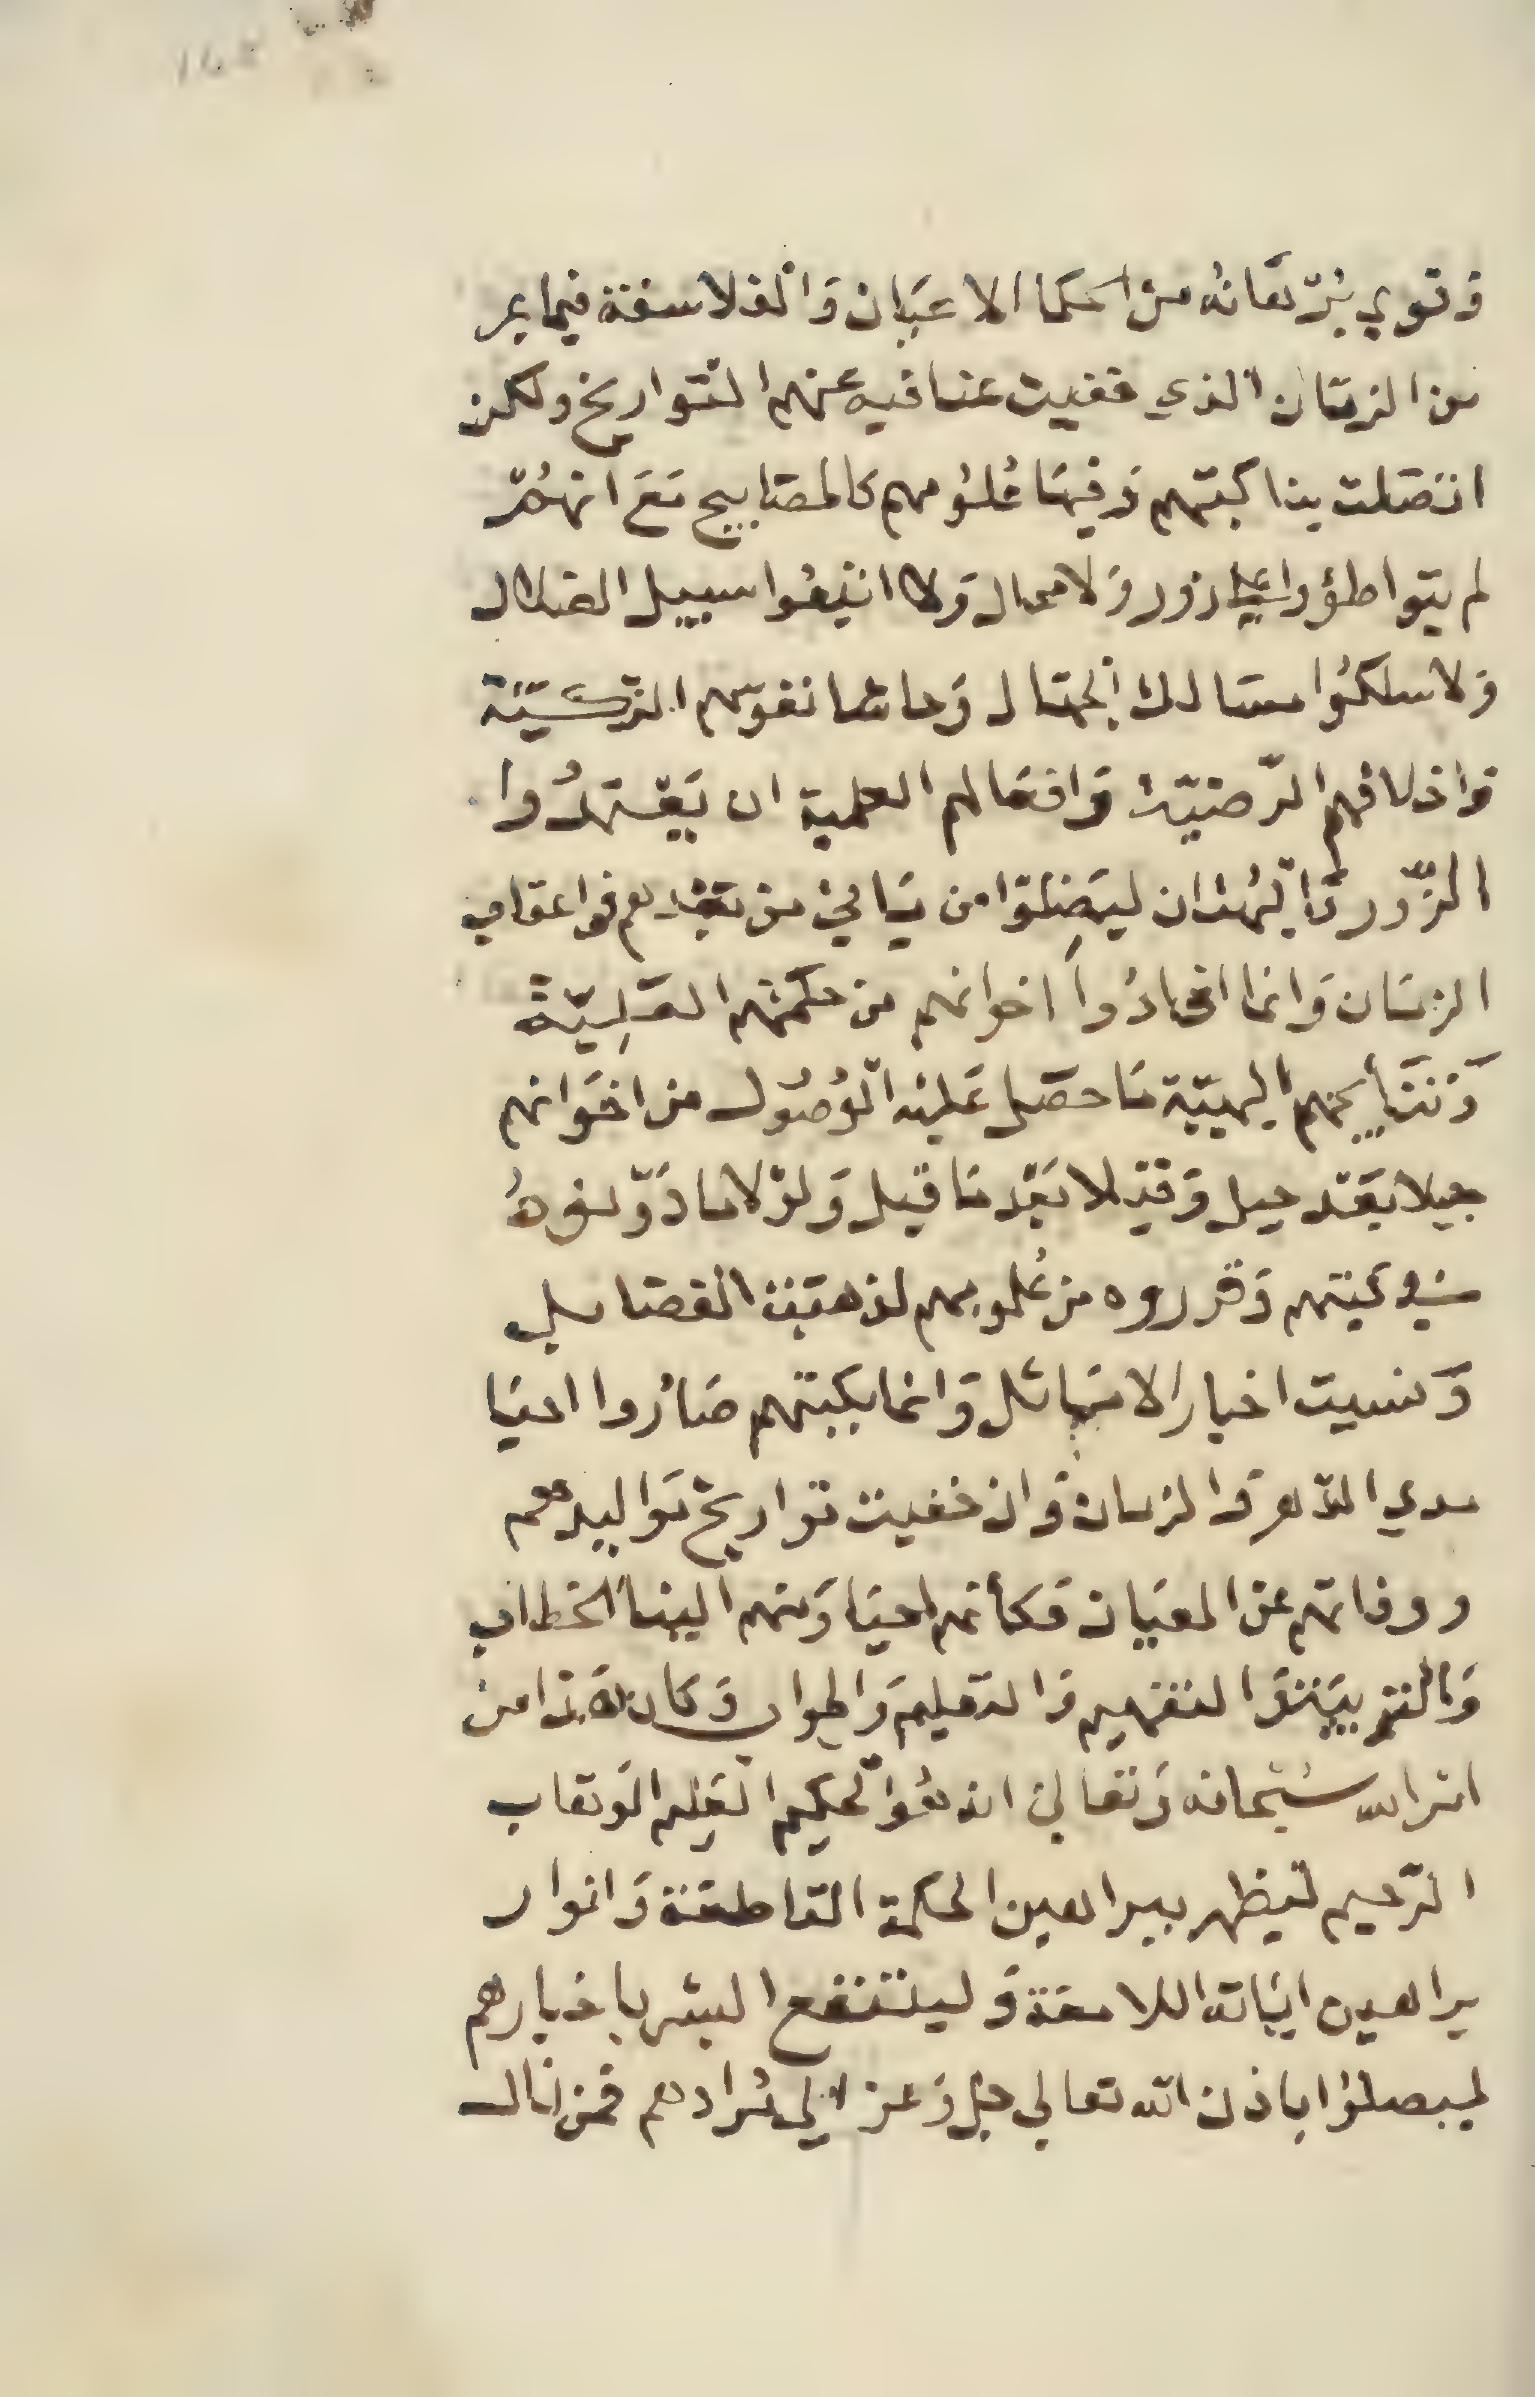 وقوي برهانه من الحكما الاعيان والفلاسفة فيما مر
من الزمان الذي خفيت عنا فيه عنهم التواريخ ولكن
اتصلت بنا كتبهم وفيها علومهم كالمصابيح مع انهم
لم يتواطؤوا علي زور ولا محال ولا اتبعوا سبيل الضلال
ولا سلكوا مسالك الجهال وحاشا نفوسهم الزكية
واخلاقهم الرضية وافعالهم العلمية ان يعتمدوا
الزور والبهتان ليضلوا من ياتي من بعدهم في اعقاب
الزمان وانما افادوا اخوانهم من حكمتهم العلية
ونتايجهم البهية ما حصل عليه الوصول من اخوانهم
جيلا بعد جيل وقبيلا بعد قبيل ولولا ما دونوه
في كتبهم وقرروه من علومهم لذهبت الفضايل
ونسيت اخبار الاماثل وانما بكتبهم صاروا احيا
مدي الدهر والزمان وان خفيت تواريخ مواليدهم
ووفاتهم عن العيان فكأنهم احيا ومنهم الينا الخطاب
وبالتفهيم والتعليم والجواب وكان هذا من
امر الله سبحانه وتعالي انه هو الحكيم العليم الوهاب
الرحيم ليظهر براهين الحكمة القاطعة وانوار
براهين اياته اللامعة ولينتفع البشر باخبارهم
ليصلوا باذن الله تعالي جل وعز الي مرادهم فمن نال